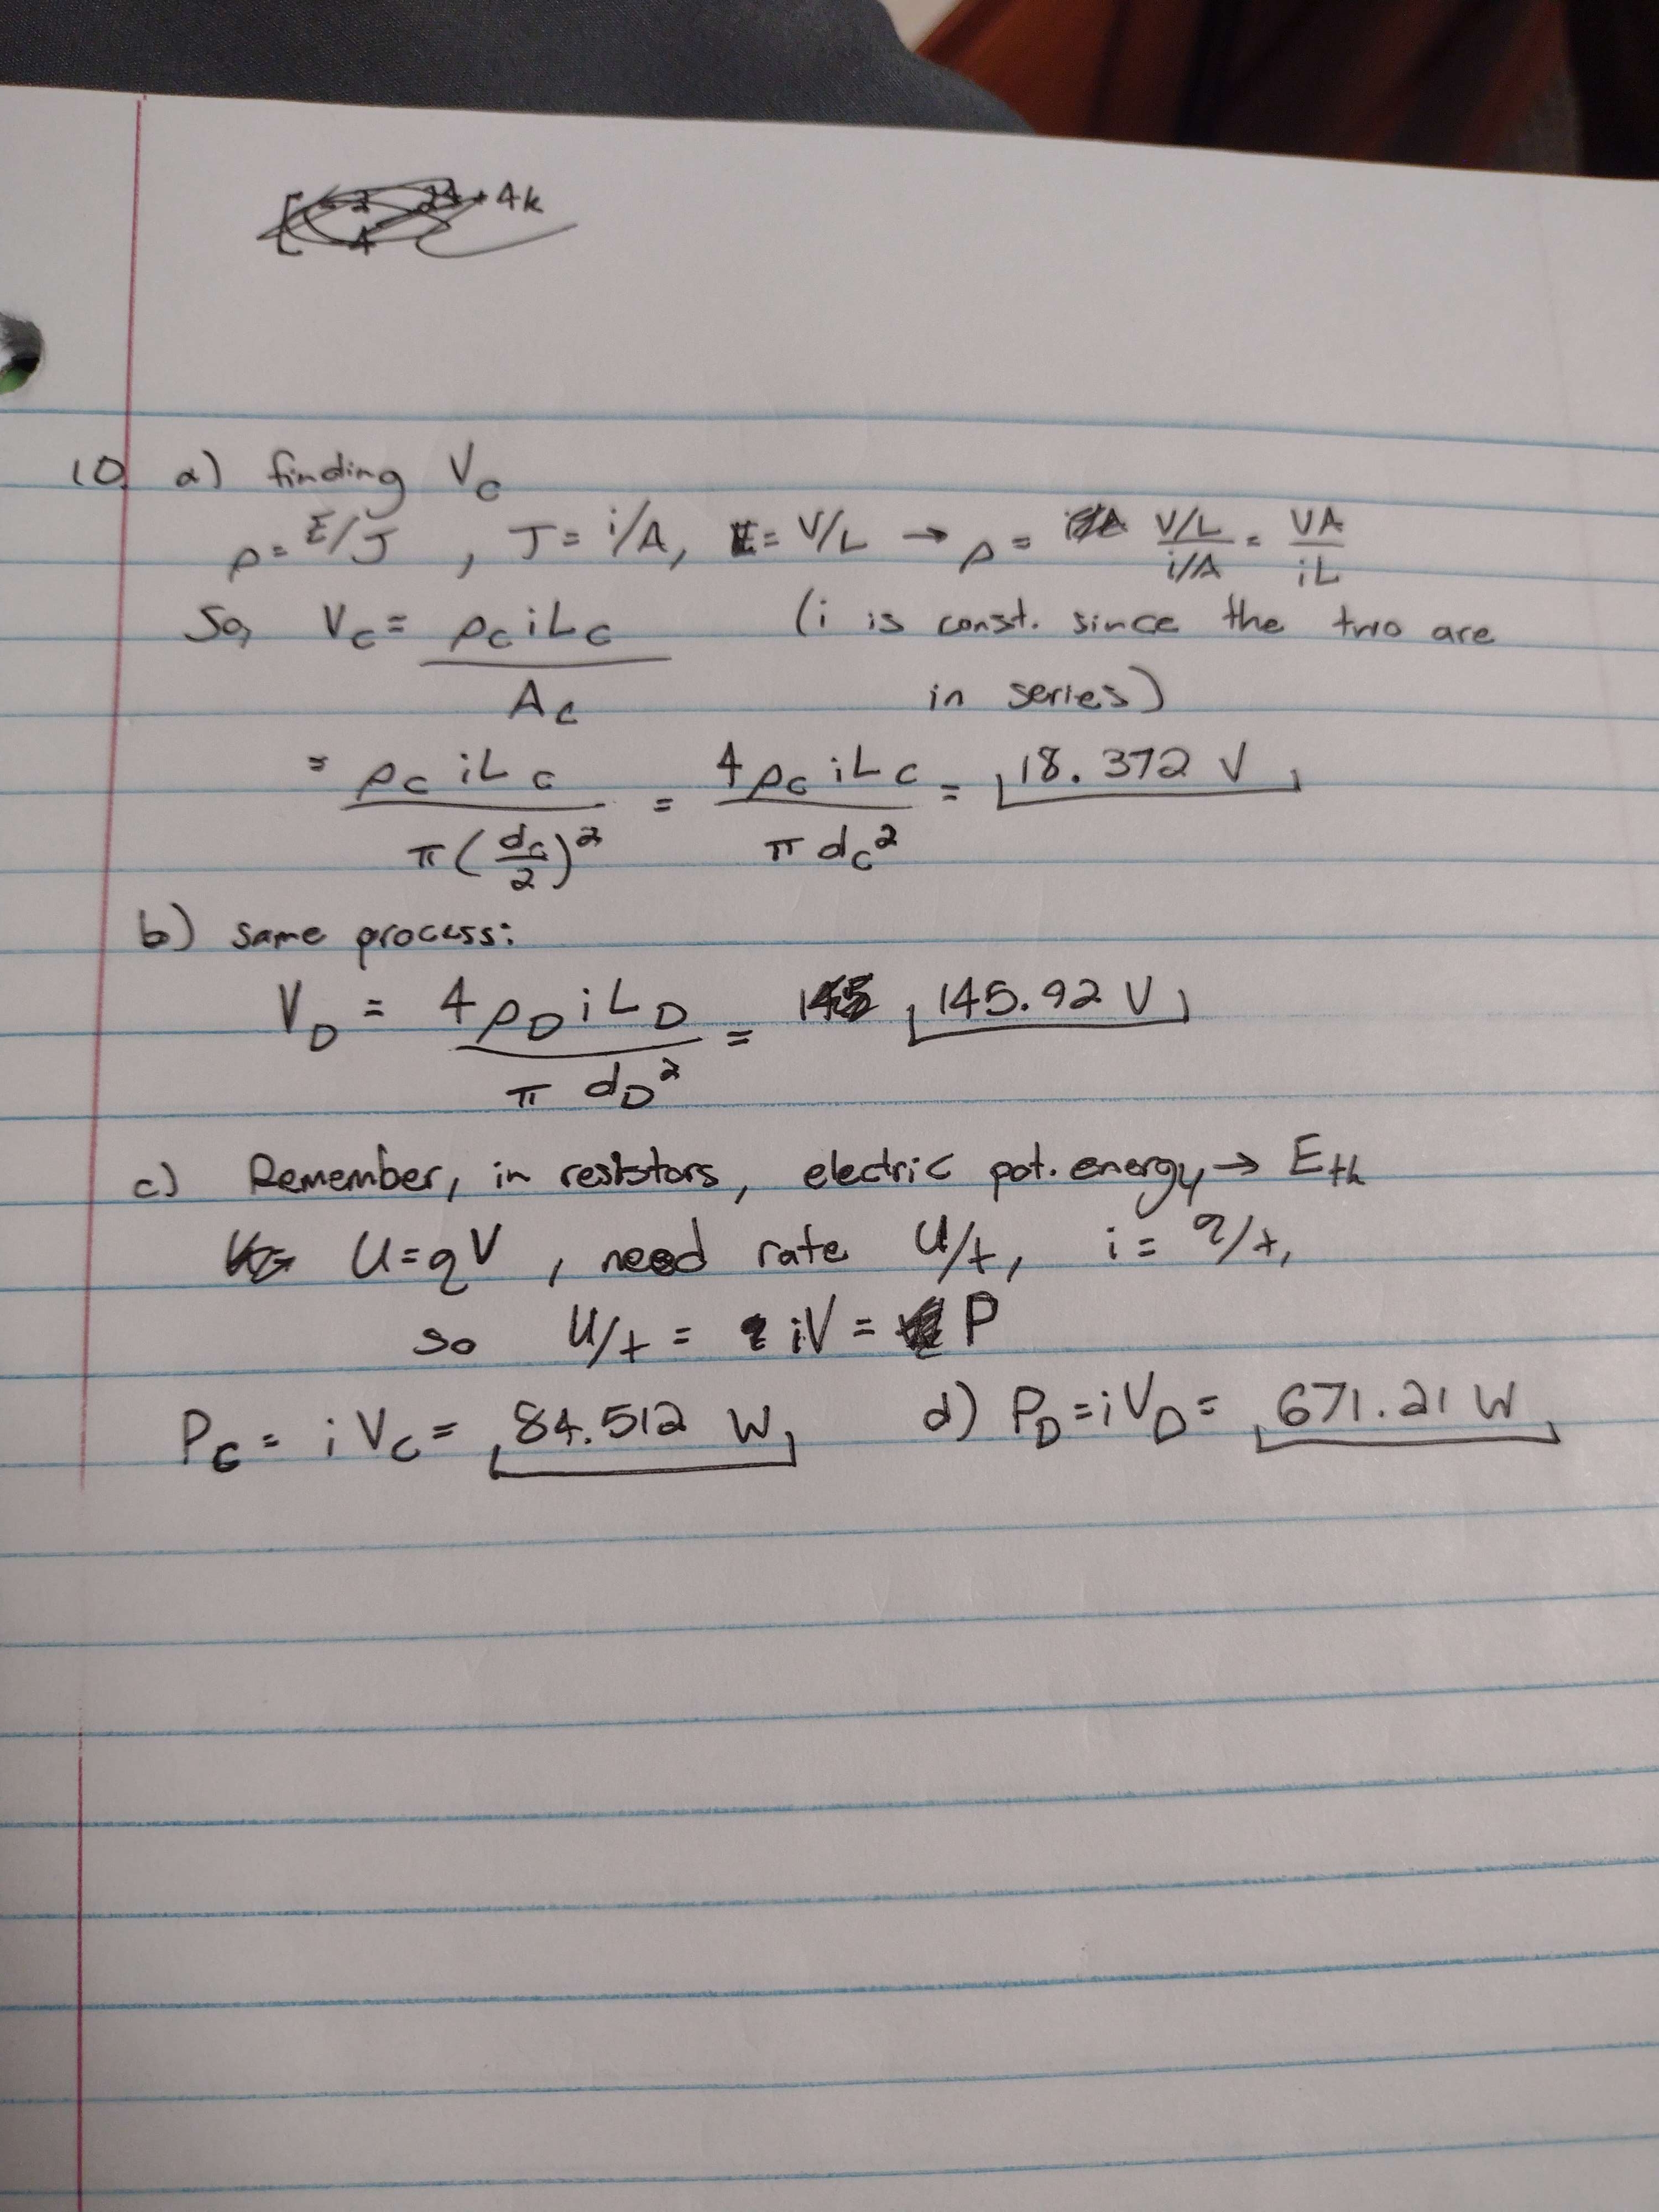 +4k
10. a) finding V_C
ρ = E/J , J = i/A, E = V/L → ρ = (V/L)/(i/A) = VA/iL
So, V_C = ρ_C i L_C / A_C (i is const. since the two are
in series)
= ρ_C i L_C / π(d_C/2)² = 4ρ_C i L_C / π d_C² = 18.372 V
b) same process:
V_D = 4ρ_D i L_D / π d_D² = 145.92 V
c) Remember, in resistors, electric pot. energy → E_th
U = qV , need rate U/t, i = q/t,
so U/t = iV = P
P_C = i V_C = 84.512 W d) P_D = i V_D = 671.21 W